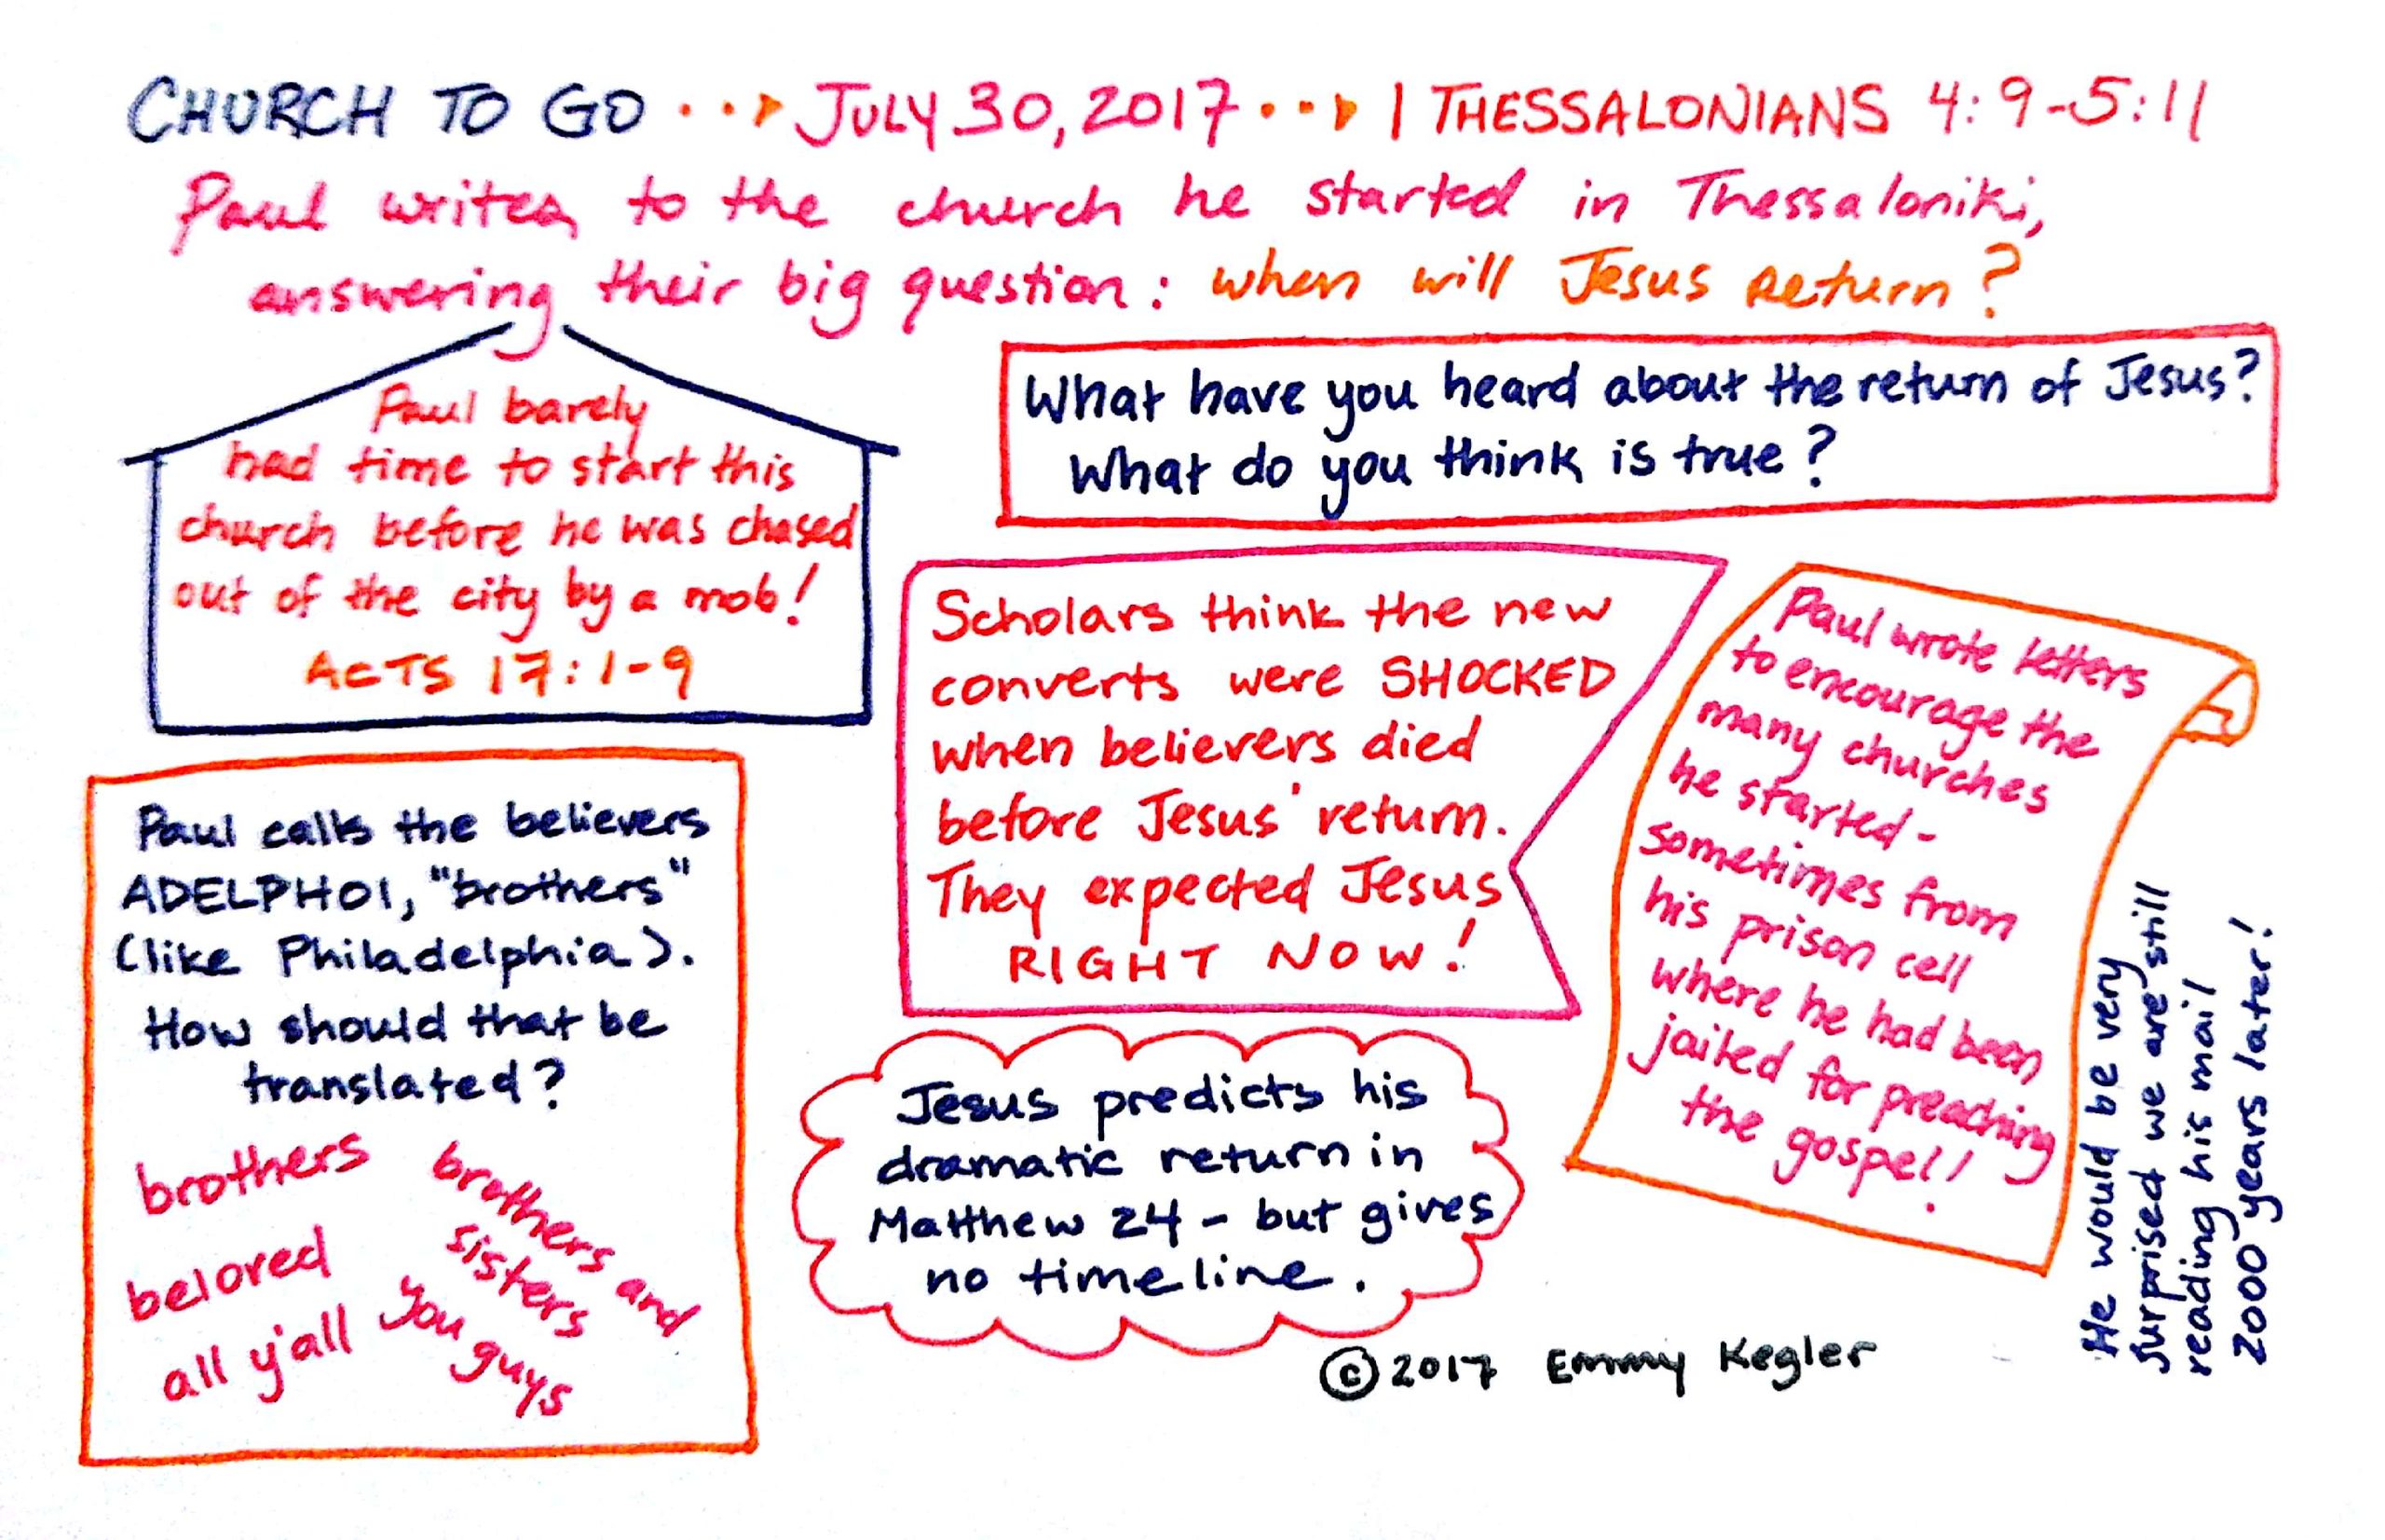 CHURCH TO GO ··▸ JULY 30, 2017 ··▸ 1 THESSALONIANS 4:9-5:11
Paul writes to the church he started in Thessaloniki,
answering their big question: when will Jesus return?
Paul barely
had time to start this
church before he was chased
out of the city by a mob!
ACTS 17:1-9
What have you heard about the return of Jesus?
What do you think is true?
Scholars think the new
converts were SHOCKED
when believers died
before Jesus' return.
They expected Jesus
RIGHT NOW!
Paul wrote letters
to encourage the
many churches
he started-
sometimes from
his prison cell
where he had been
jailed for preaching
the gospel!
He would be very
surprised we are still
reading his mail
2000 years later!
Paul calls the believers
ADELPHOI, "brothers"
(like Philadelphia).
How should that be
translated?
brothers
brothers and
sisters
beloved
you
guys
all y'all
Jesus predicts his
dramatic return in
Matthew 24 - but gives
no timeline.
© 2017 Emmy Kegler